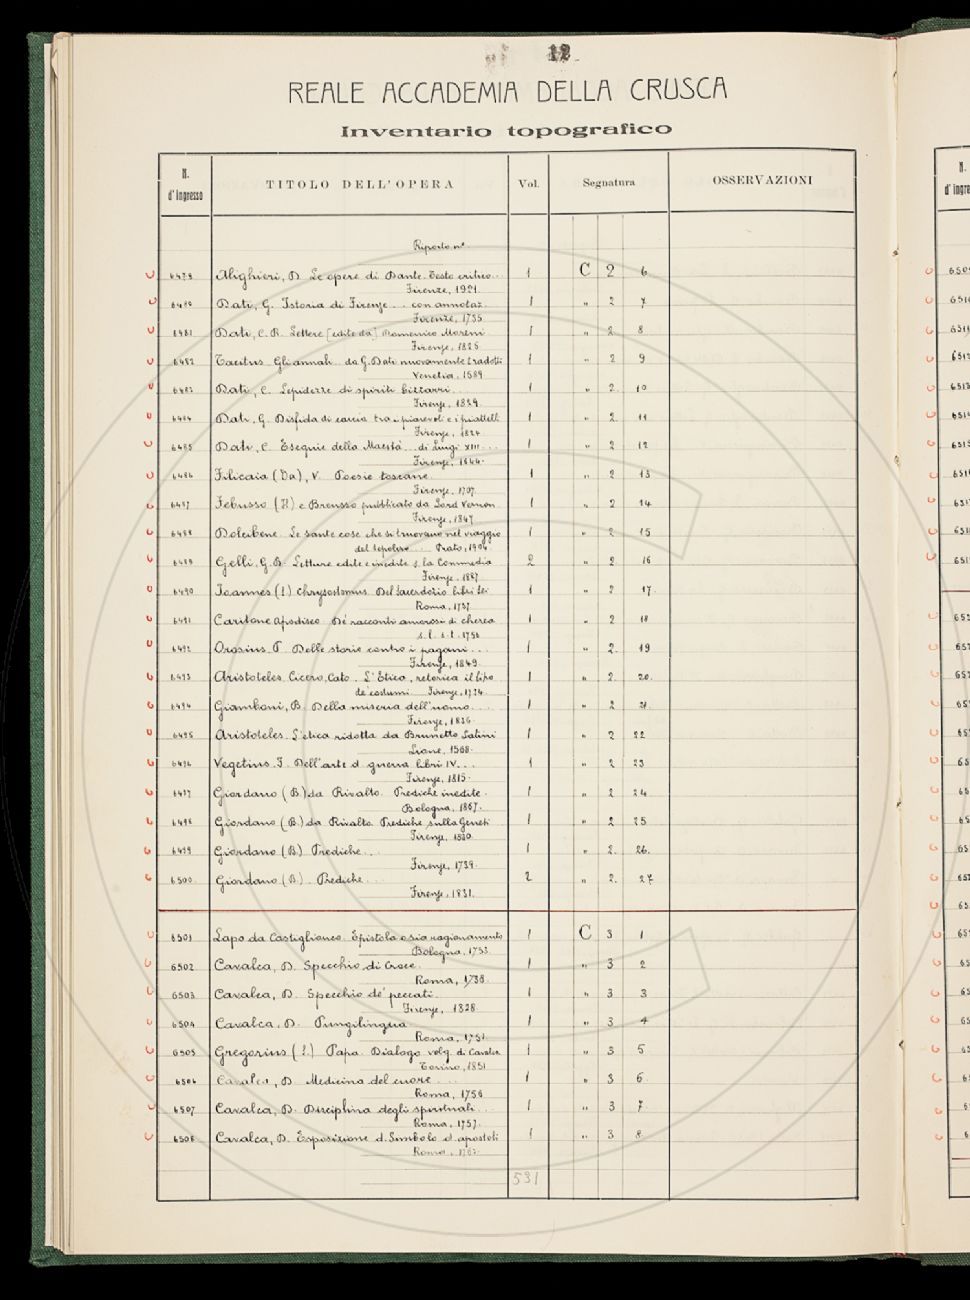 12
REALE ACCADEMIA DELLA CRUSCA
Inventario topografico
N. d'ingresso TITOLO DELL'OPERA Vol. Segnatura OSSERVAZIONI
Riporto nº
6479 Alighieri, D. Le opere di Dante. Testo critico.. 1 C 2 6
Firenze, 1921.
6480 Dati, G. Istoria di Firenze... con annotaz. 1 " 2 7
Firenze, 1735
6481 Dati, C. R. Lettere [edite da] Domenico Moreni 1 " 2 8
Firenze, 1825
6482 Tacitus Gli annali da G. Dati nuovamente tradotti 1 " 2 9
Venetia, 1589
6483 Dati, C. Lepidezze di spiriti bizzarri... 1 " 2 10
Firenze, 1829.
6484 Dati, G. Disfida di caccia tra i piacevoli e i piattelli 1 " 2 11
Firenze, 1824
6485 Dati, C. Esequie della Maestà... di Luigi XIII... 1 " 2 12
Firenze, 1644.
6486 Filicaia (Da), V. Poesie toscane 1 " 2 13
Firenze, 1707.
6487 Febusso (H) e Breusso pubblicato da Lord Vernon 1 " 2 14
Firenze, 1847
6488 Dolcibene. Le sante cose che si truovano nel viaggio 1 " 2 15
del sepolcro... Prato, 1904.
6489 Gelli, G. B. Letture edite e inedite s. la Commedia 2 " 2 16
Firenze, 1887
6490 Joannes (S.) Chrysostomus. Del Sacerdozio libri Sei 1 " 2 17.
Roma, 1757.
6491 Caritone Afrodiseo. De' racconti amorosi di cherea 1 " 2 18
s. l. s. t. 1756
6492 Orosius, P. Delle storie contro i pagani... 1 " 2. 19
Firenze, 1849.
6493 Aristoteles. Cicero, Cato. L'Etica, retorica il libro 1 " 2. 20.
de' costumi Firenze, 1734.
6494 Giamboni, B. Della miseria dell'uomo... 1 " 2 21.
Firenze, 1836.
6495 Aristoteles. L'etica ridotta da Brunetto Latini 1 " 2 22
Lione, 1568.
6496 Vegetius. F. Dell'arte d. guerra libri IV... 1 " 2 23
Firenze, 1815.
6497 Giordano (B) da Rivalto. Prediche inedite. 1 " 2 24
Bologna, 1867.
6498 Giordano (B.) da Rivalto. Prediche sulla Genesi 1 " 2 25
Firenze, 1830.
6499 Giordano (B.) Prediche... 1 " 2. 26.
Firenze, 1739.
6500 Giordano (B.) Prediche... 2 " 2. 27
Firenze, 1831.
6501 Lapo da Castiglionco. Epistola o sia ragionamento 1 C 3 1
Bologna, 1753.
6502 Cavalca, D. Specchio di Croce. 1 " 3 2
Roma, 1738.
6503 Cavalca, D. Specchio de' peccati. 1 " 3 3
Firenze, 1828.
6504 Cavalca, D. Pungilingua 1 " 3 4
Roma, 1751
6505 Gregorius (S.) Papa. Dialogo volg. di Cavalca 1 " 3 5
Torino, 1851
6506 Cavalca, D. Medicina del cuore... 1 " 3 6.
Roma, 1756
6507 Cavalca, D. Disciplina degli spirituali... 1 " 3 7.
Roma, 1757.
6508 Cavalca, D. Esposizione d. Simbolo d. apostoli 1 " 3 8
Roma, 1763.
531